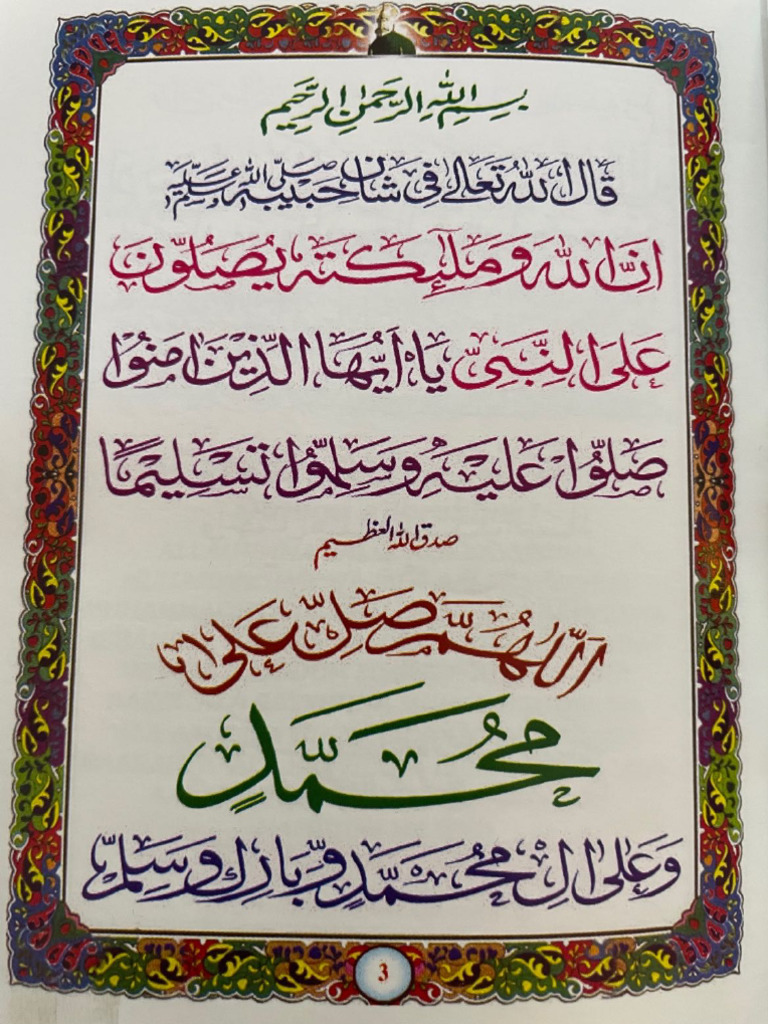 بِسْمِ اللهِ الرَّحْمٰنِ الرَّحِيْمِ
قَالَ اللهُ تَعَالٰى فِىْ شَانِ حَبِيْبِهٖ صَلَّى اللهُ عَلَيْهِ وَسَلَّمَ
اِنَّ اللهَ وَمَلٰٓئِكَتَهٗ يُصَلُّوْنَ
عَلَى النَّبِىِّ يَا اَيُّهَا الَّذِيْنَ اٰمَنُوْا
صَلُّوْا عَلَيْهِ وَسَلِّمُوْا تَسْلِيْمًا
صدق الله العظيم
اَللّٰهُمَّ صَلِّ عَلٰى
مُحَمَّدٍ
وَعَلٰى اٰلِ مُحَمَّدٍ وَّبَارِكْ وَسَلِّمْ
3